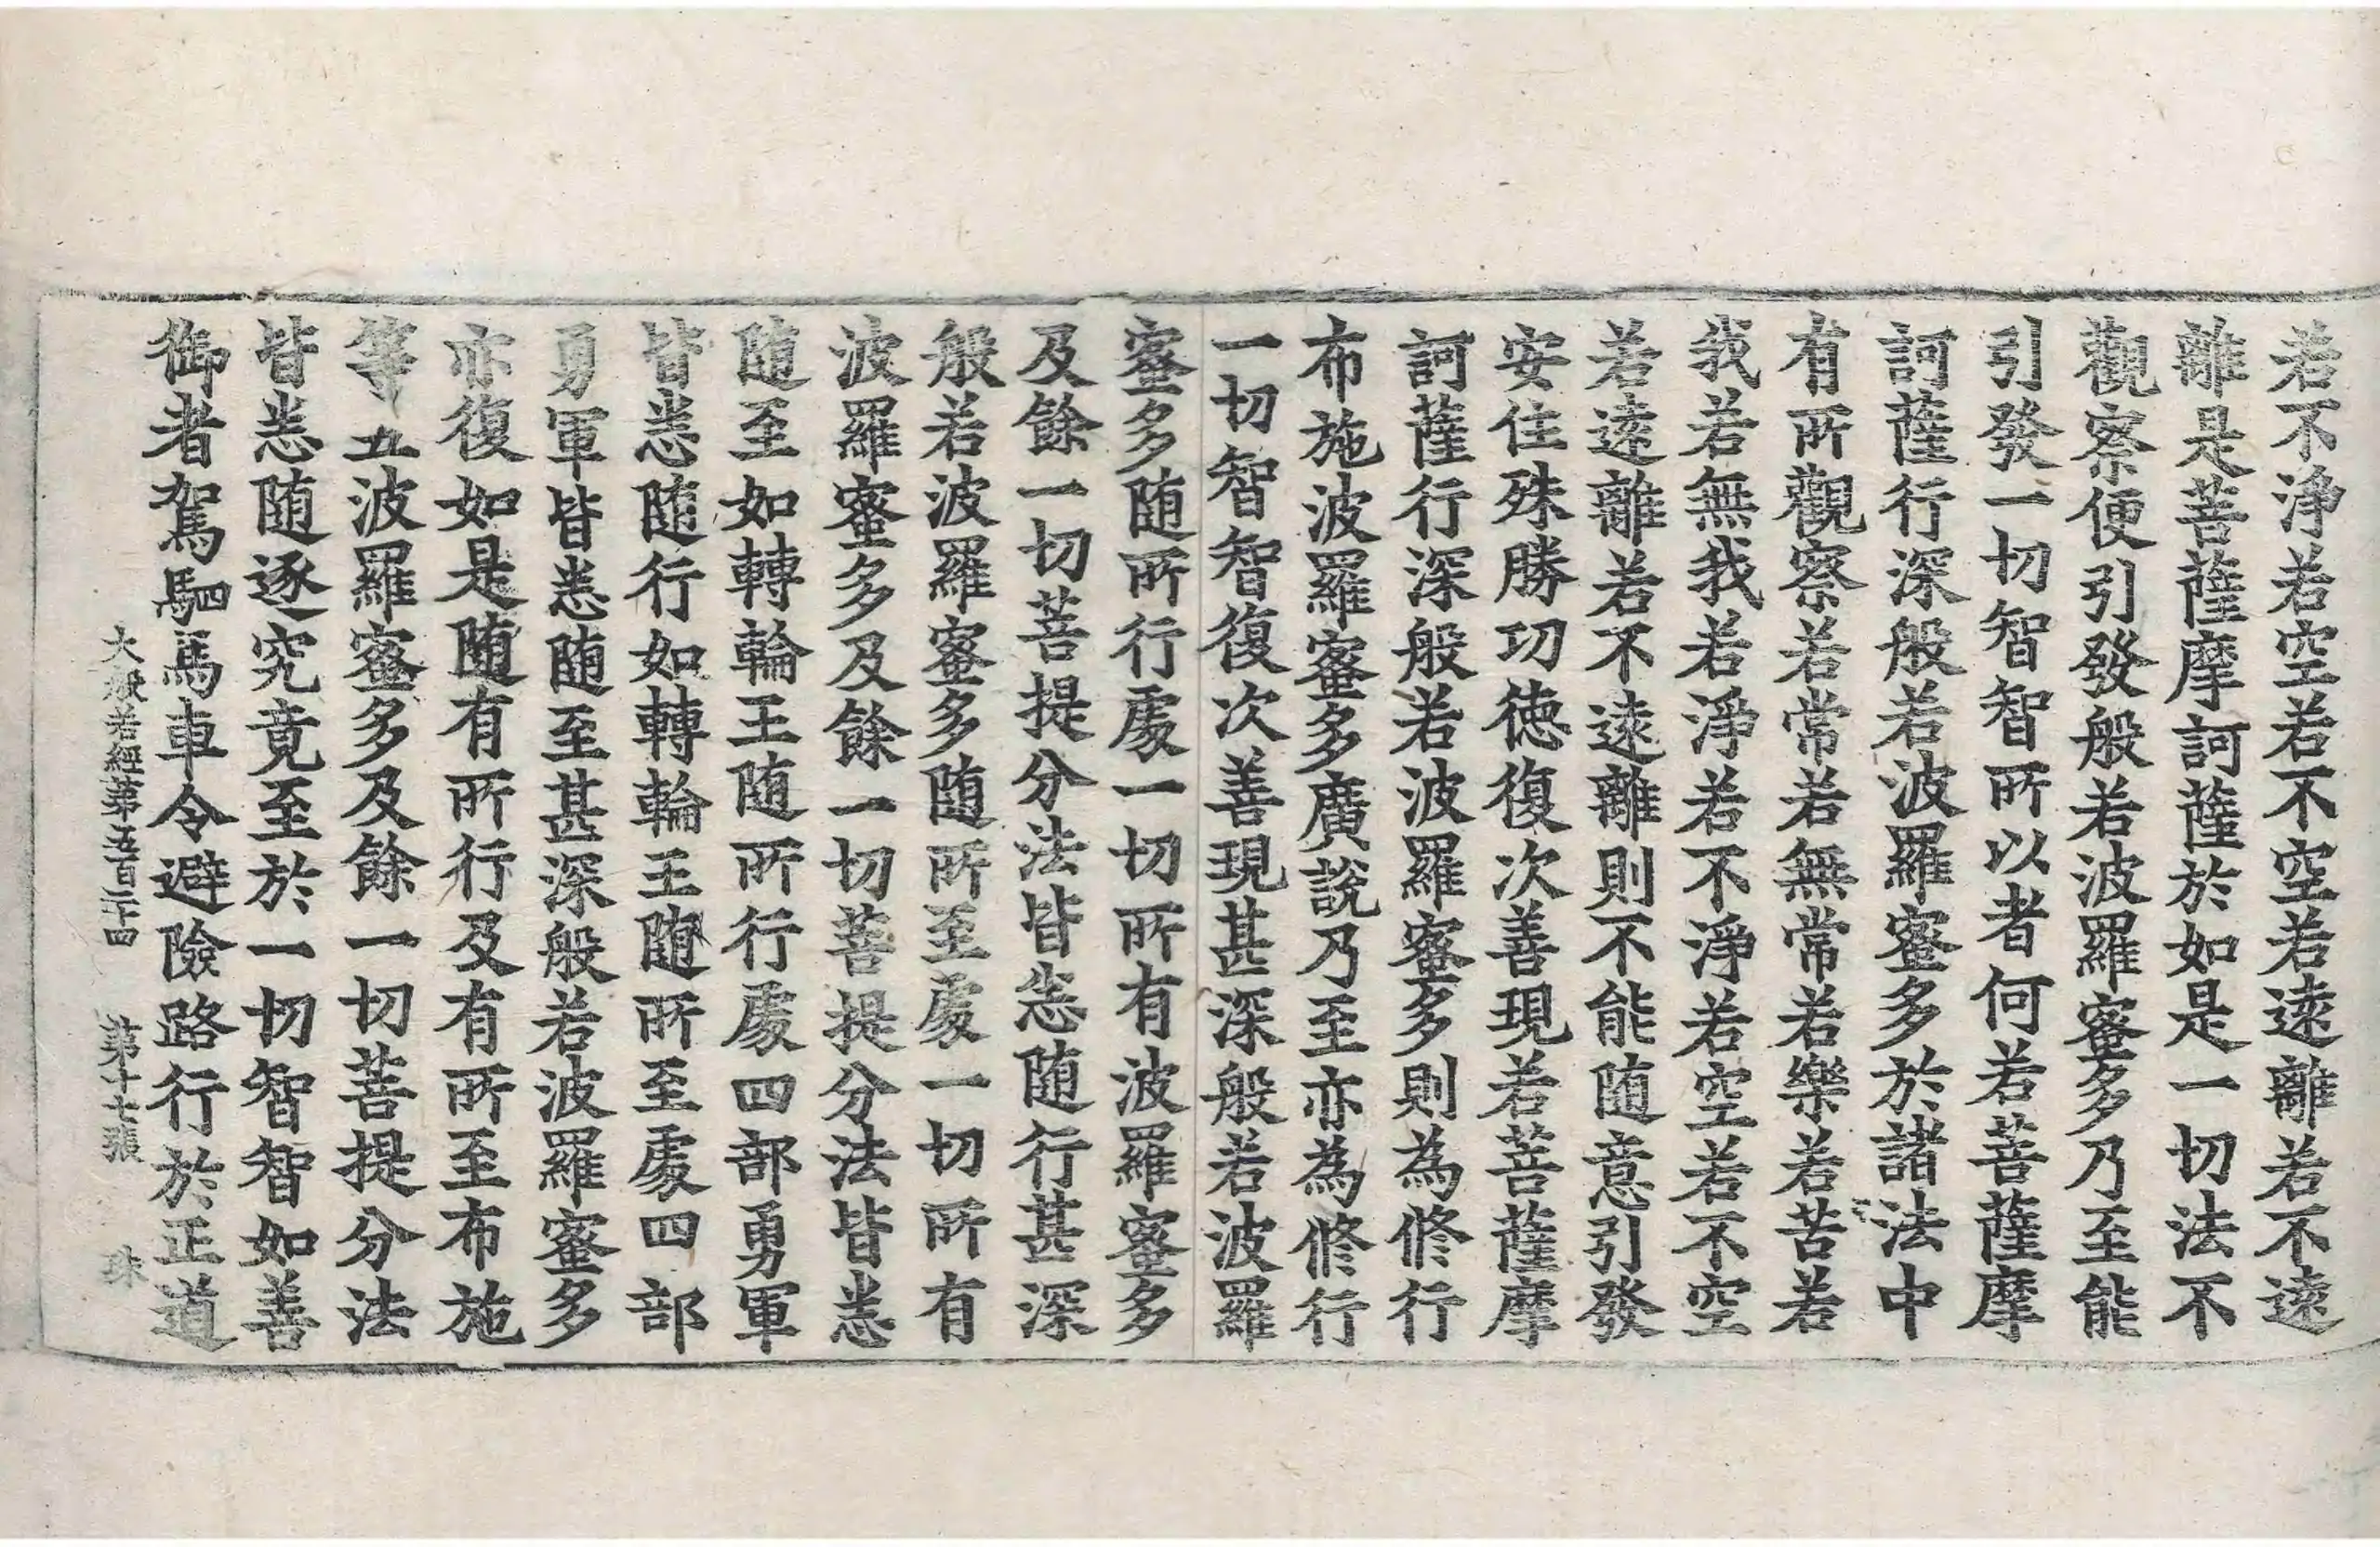 若不淨若空若不空若遠離若不遠
離是菩薩摩訶薩於如是一切法不
觀察便引發般若波羅蜜多乃至能
引發一切智智所以者何若菩薩摩
訶薩行深般若波羅蜜多於諸法中
有所觀察若常若無常若樂若苦若
我若無我若淨若不淨若空若不空
若遠離若不遠離則不能随意引發
安住殊勝功德復次善現若菩薩摩
訶薩行深般若波羅蜜多則為修行
布施波羅蜜多廣說乃至亦為修行
一切智智復次善現甚深般若波羅
蜜多随所行處一切所有波羅蜜多
及餘一切菩提分法皆悉随行甚深
般若波羅蜜多随所至處一切所有
波羅蜜多及餘一切菩提分法皆悉
随至如轉輪王随所行處四部勇軍
皆悉随行如轉輪王随所至處四部
勇軍皆悉随至甚深般若波羅蜜多
亦復如是随有所行及有所至布施
等五波羅蜜多及餘一切菩提分法
皆悉随逐究竟至於一切智智如善
御者駕駟馬車令避險路行於正道
大般若經第五百二十四 第十七張 珠